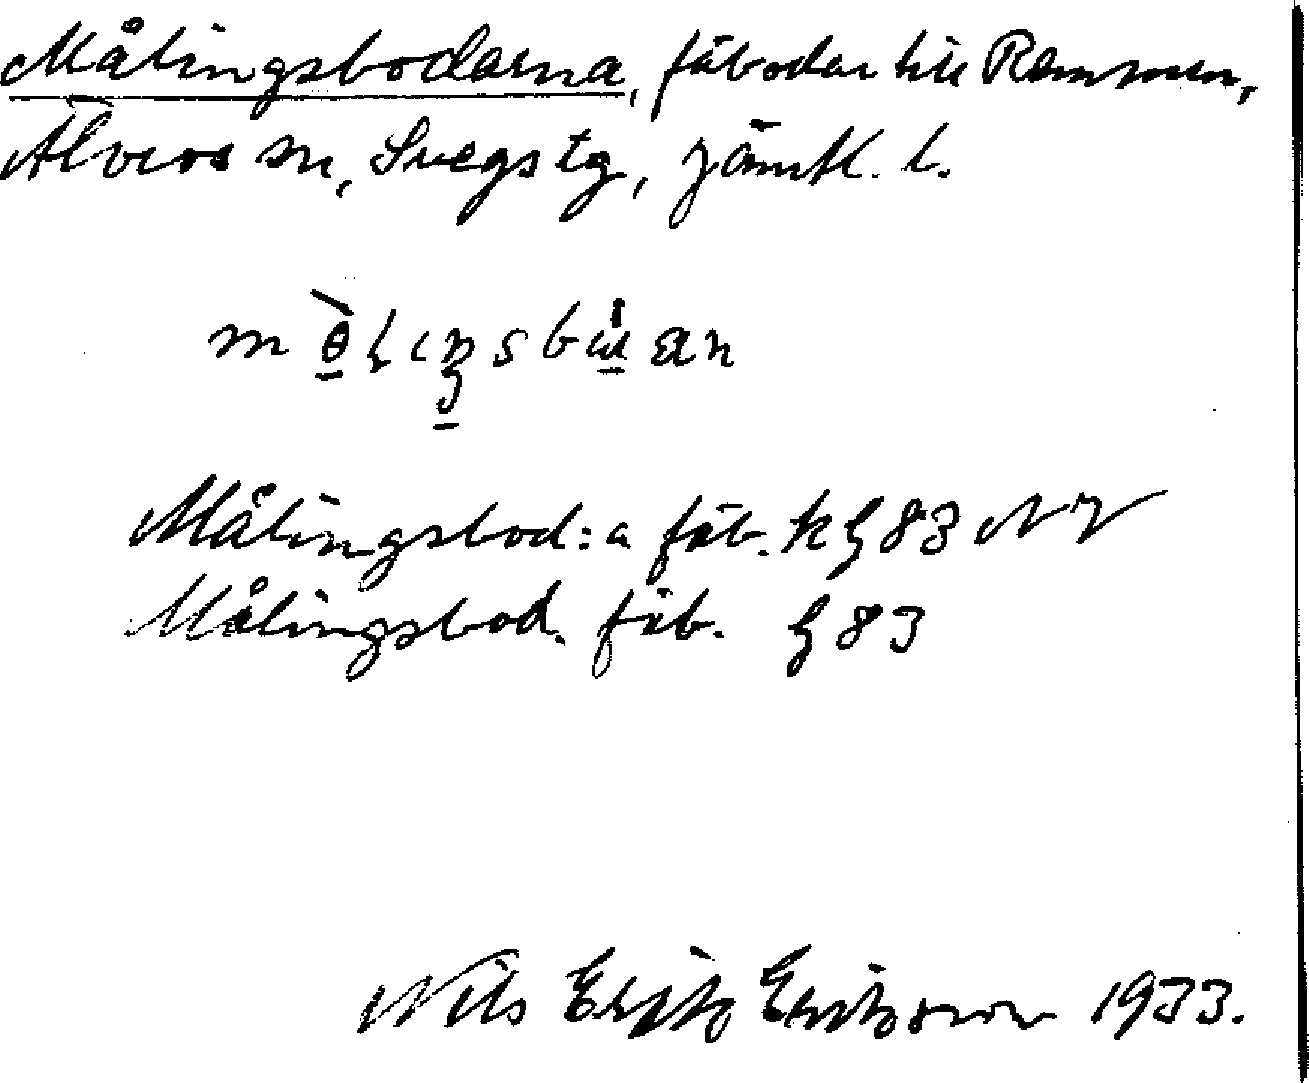 Målingsbodarna, fäbodar till Remmen,
Älvros sn, Svegs tg, Jämtl. l.
Målingsbod:a fäb. k ζ 83 NV
Målingsbod. fäb. ζ 83
Nils Erik Eriksson 1933.